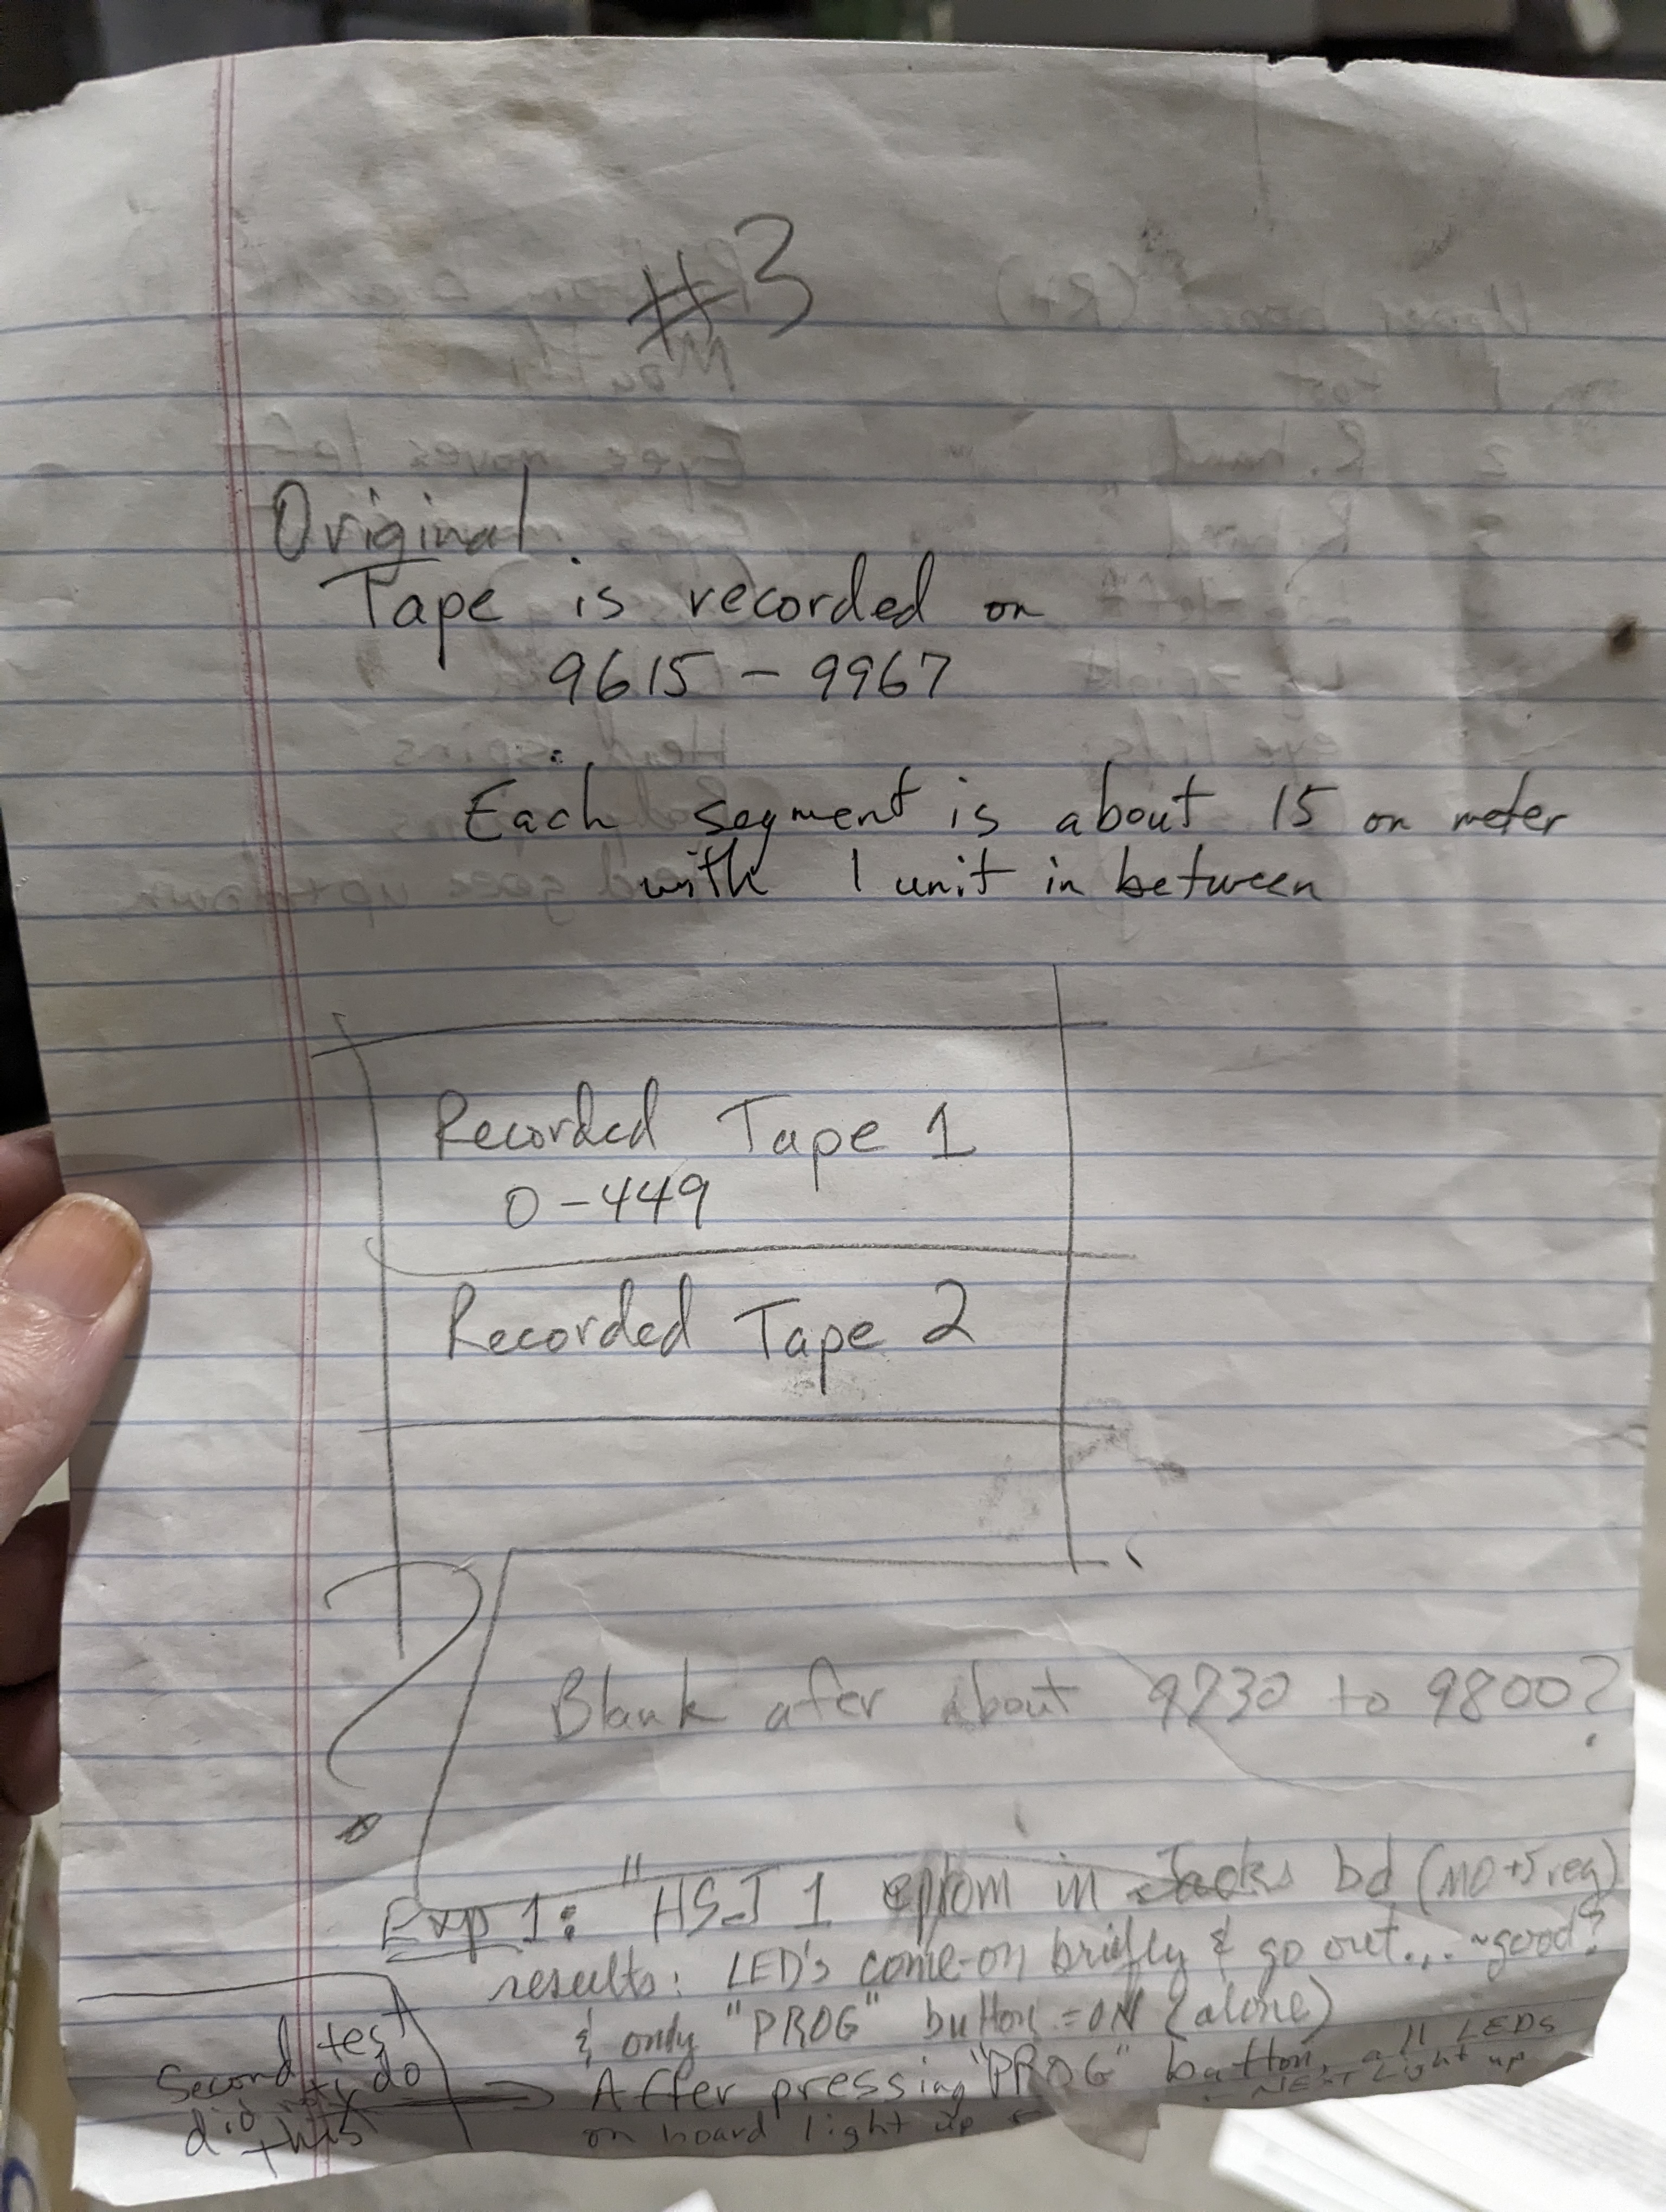 #3
Original
Tape is recorded on
9615 - 9967
Each segment is about 15 on meter
with 1 unit in between
Recorded Tape 1
0-449
Recorded Tape 2
?
Blank afer about 9730 to 9800?
Exp 1: "HSJ 1 eprom in Jacks bd (no +5 reg)
results: LED's come-on briefly & go out... ~good?
& only "PROG" button = ON (alone)
Second test
did not do
this
After pressing "PROG" button, all LEDS
on board light up
NEXT Light up